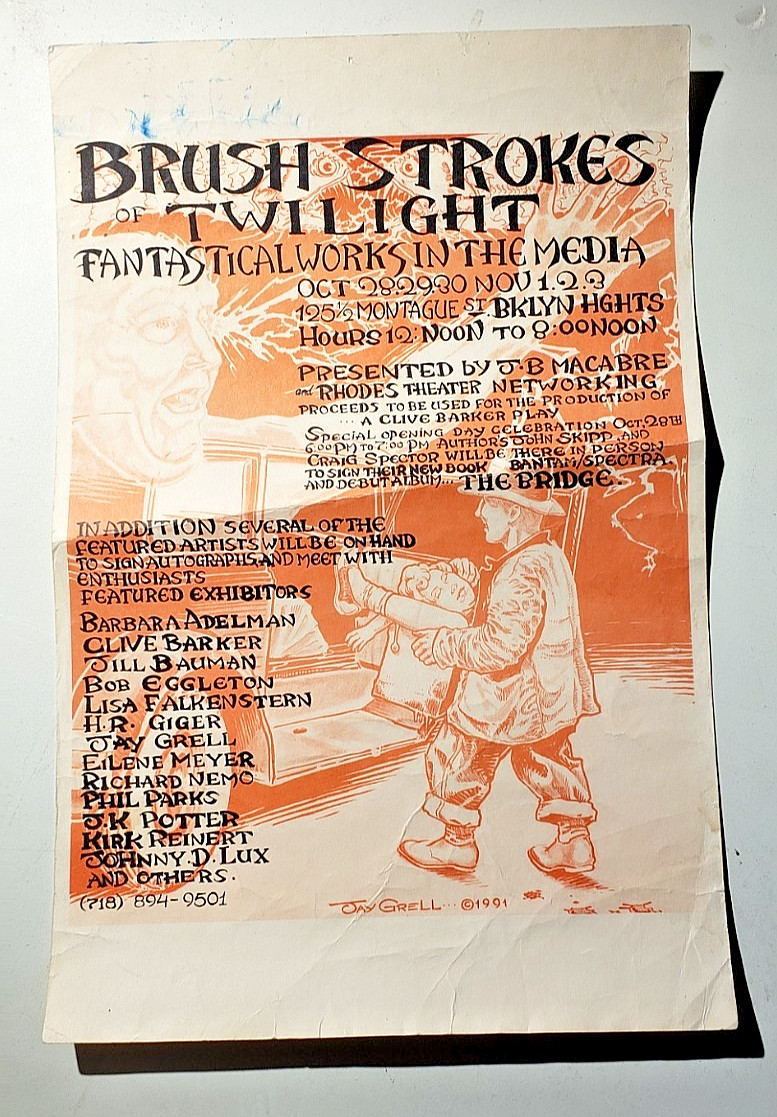 BRUSH STROKES
OF TWILIGHT
FANTASTICAL WORKS IN THE MEDIA
OCT 28.29.30 NOV 1.2.3
125½ MONTAGUE ST. BKLYN HGHTS
HOURS 12:NOON TO 8:00NOON
PRESENTED BY J.B MACABRE
and RHODES THEATER NETWORKING
PROCEEDS TO BE USED FOR THE PRODUCTION OF
... A CLIVE BARKER PLAY
SPECIAL OPENING DAY CELEBRATION OCT. 28TH
6:00 PM TO 7:00 PM AUTHORS JOHN SKIPP AND
CRAIG SPECTOR WILL BE THERE IN PERSON
TO SIGN THEIR NEW BOOK BANTAM/SPECTRA.
AND DEBUT ALBUM... THE BRIDGE.
IN ADDITION SEVERAL OF THE
FEATURED ARTISTS WILL BE ON HAND
TO SIGN AUTOGRAPHS, AND MEET WITH
ENTHUSIASTS
FEATURED EXHIBITORS
BARBARA ADELMAN
CLIVE BARKER
JILL BAUMAN
BOB EGGLETON
LISA FALKENSTERN
H.R. GIGER
JAY GRELL
EILENE MEYER
RICHARD NEMO
PHIL PARKS
J.K POTTER
KIRK REINERT
JOHNNY.D.LUX
AND OTHERS.
(718) 894-9501
JAY GRELL... ©1991